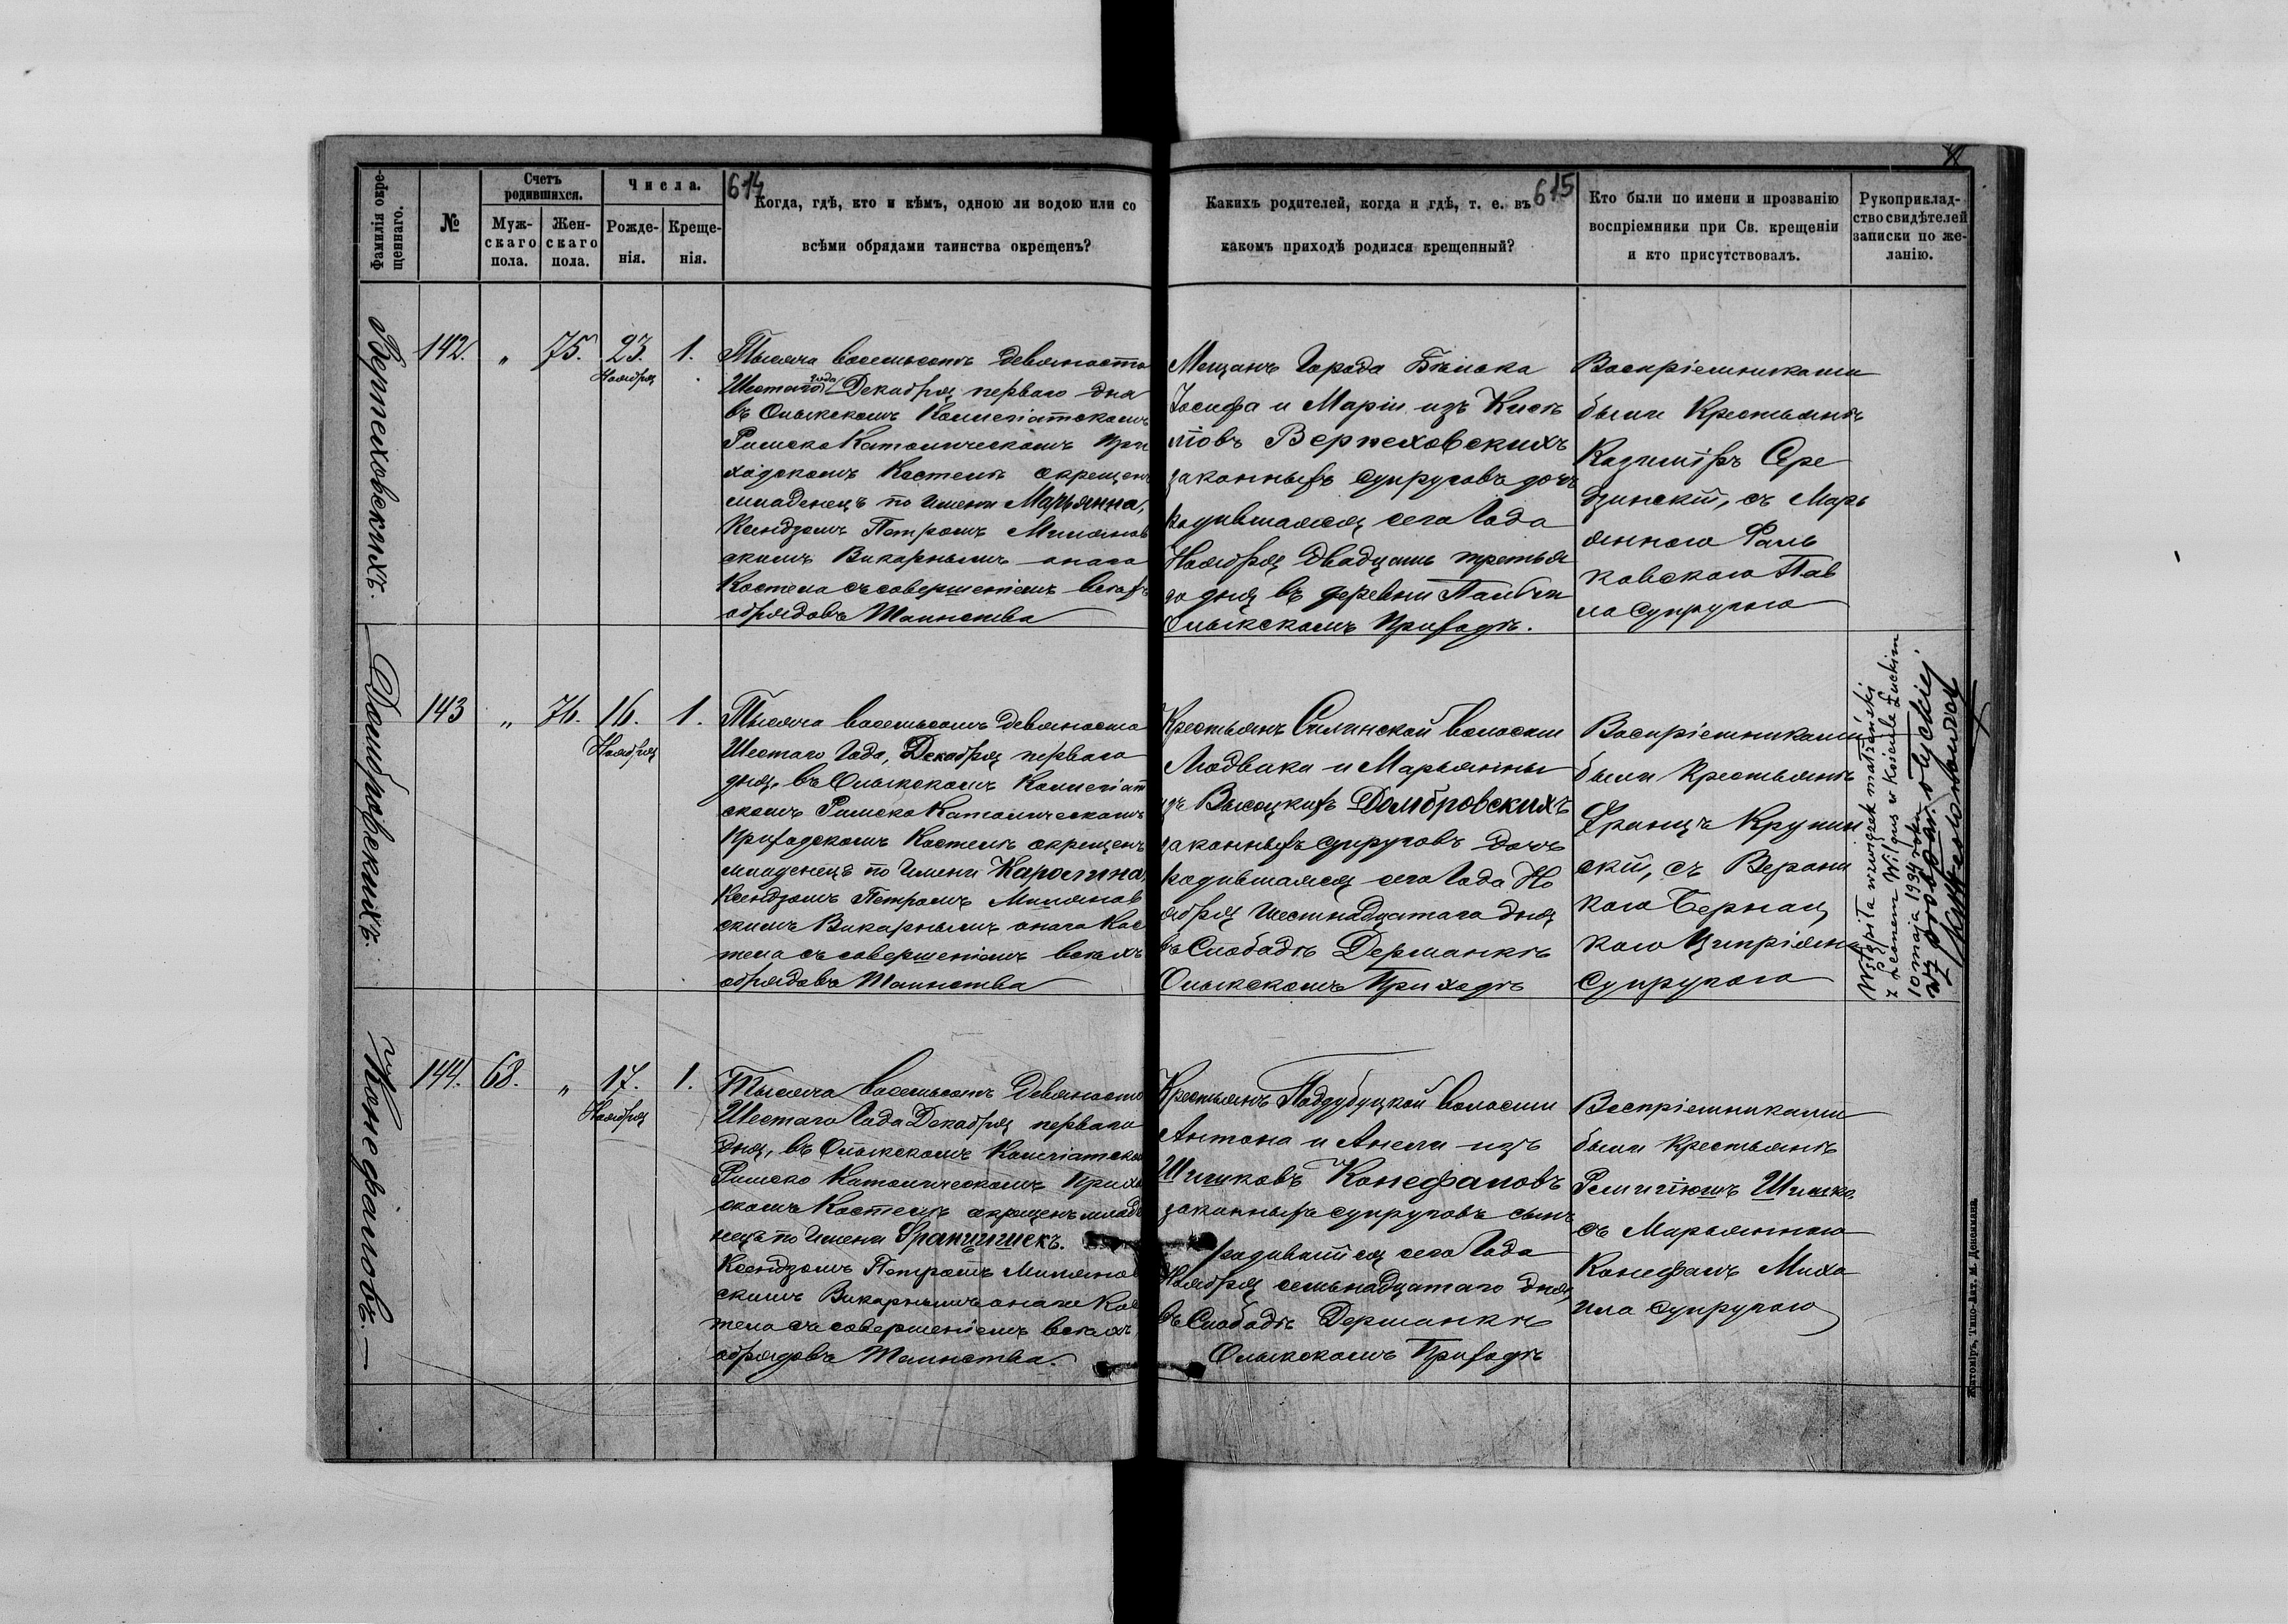 614
615
Фамилія окре-
щеннаго.
№
Счетъ
родившихся.
Муж-
скаго
пола.
Жен-
скаго
пола.
Числа.
Рожде-
нія.
Креще-
нія.
Когда, гдѣ, кто и кѣмъ, одною ли водою или со
всѣми обрядами таинства окрещенъ?
Какихъ родителей, когда и гдѣ, т. е. въ
какомъ приходѣ родился крещенный?
Кто были по имени и прозванію
воспріемники при Св. крещеніи
и кто присутствовалъ.
Рукоприклад-
ство свидѣтелей
записки по же-
ланію.
Верпеховскихъ.
142.
"
75.
23.
Ноября
1.
Тысяча восемьсотъ девяносто
Шестаго года Декабря перваго дня
въ Олыкскомъ Коллегіатскомъ
Римско Католическомъ При
ходскомъ Костелѣ окрещенъ
младенецъ по имени Марьянна,
Ксендзомъ Петромъ Миляновскимъ
скимъ Викарнымъ онаго
Костела съ совершеніемъ всѣхъ
обрядовъ Таинства
Мещанъ Города
Іосифа и Маріи изъ
Верпеховскихъ
законныхъ супруговъ дочь
родившаяся сего Года
Ноября двадцать третья
го дня въ деревни
Олыкскомъ Приходѣ.
Воспріемниками
были Крестьянѣ
Казиміръ Сре
дзинскій, съ Марь
янною Фаль
ковскою Пав
ла супругою
Домбровскихъ.
143
"
76.
16.
Ноября
1.
Тысяча восемьсотъ девяносто
Шестаго Года, Декабря перваго
дня, въ Олыкскомъ Коллегіат
скомъ Римско Католическомъ
Приходскомъ Костелѣ окрещенъ
младенецъ по Имени Каролина,
Ксендзомъ Петромъ Милянов
скимъ Викарнымъ онаго Кос
тела съ совершеніемъ всѣхъ
обрядовъ Таинства
Крестьянъ Силинской волости
Людвика и Марьянны
изъ Высоцкихъ Домбровскихъ
законныхъ супруговъ дочь
родившаяся сего Года Но
ября шестнадцатаго дня
въ Слободѣ Дерманкѣ
Олыкскомъ Приходѣ
Воспріемниками
были Крестьянѣ
Францъ Крупин
скій, съ Верони
кою Бернац
кою Ципріяна
супругою
Wstąpiła w związek małżeński
z Leonem Wilgus w kościele Łuckim
10 maja 1934 roku
Конефаловъ.
144.
68.
"
17.
Ноября
1.
Тысяча восемьсотъ девяносто
Шестаго Года Декабря перваго
дня, въ Олыкскомъ Колегіатском
Римско Католическомъ Приход
скомъ Костелѣ окрещенъ младе
нецъ по Имени Францишекъ.
Ксендзомъ Петромъ Милянов
скимъ Викарнымъ онаго Кос
тела съ совершеніемъ всѣхъ
обрядовъ Таинства.
Крестьянъ Поддубецкой волости
Антона и Анели изъ
Шишковъ Конефаловъ
законныхъ супруговъ сынъ
родившійся сего Года
Ноября семьнадцатаго дня
въ Слободѣ Дерманкѣ
Олыкскомъ Приходѣ
Воспріемниками
были Крестьянѣ
съ Марьянною
Конефалъ Миха
ила супругою
Житоміръ, Типо-Лит. М. Дененмана.